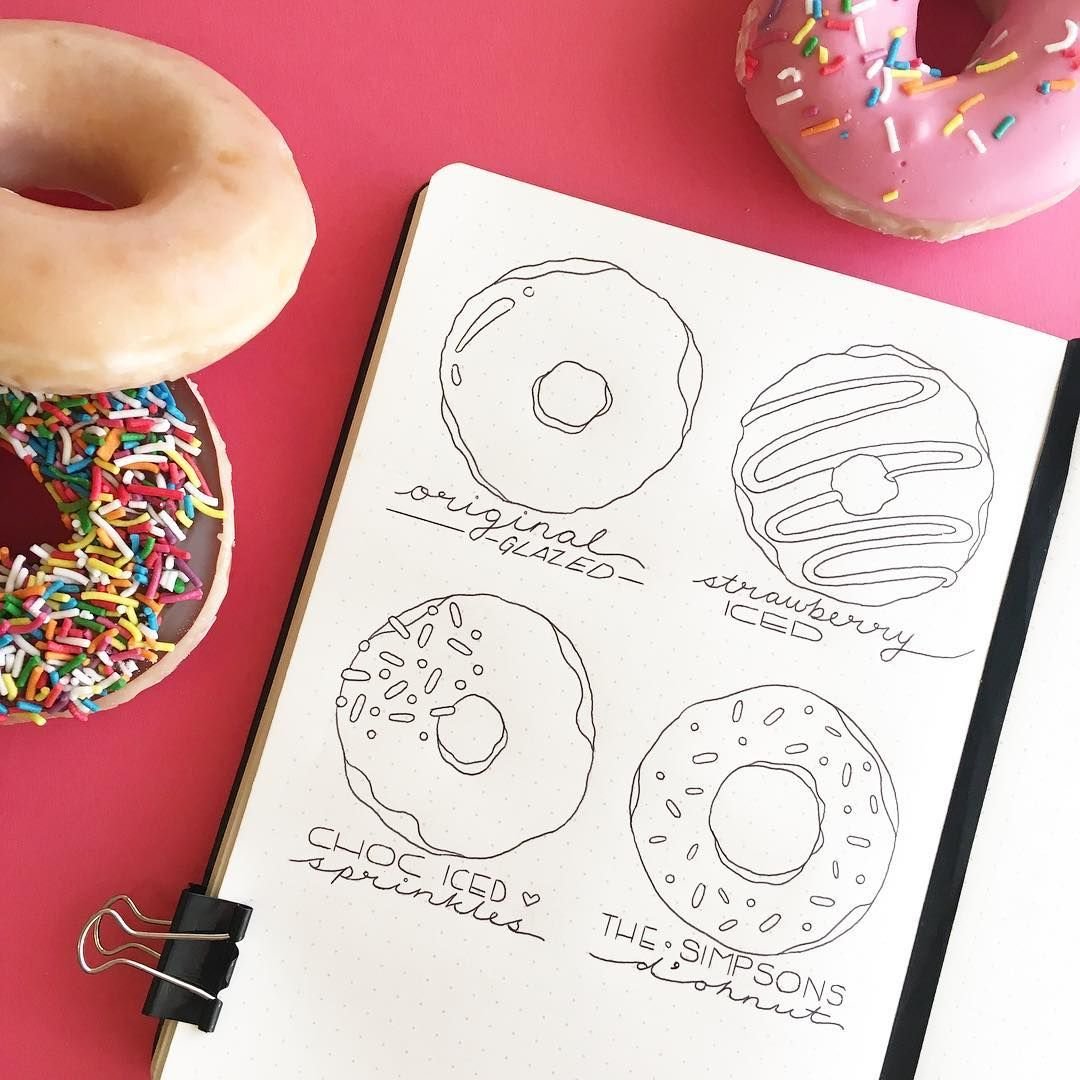 original
GLAZED
strawberry
ICED
CHOC ICED ♡
sprinkles
THE • SIMPSONS
d'ohnut